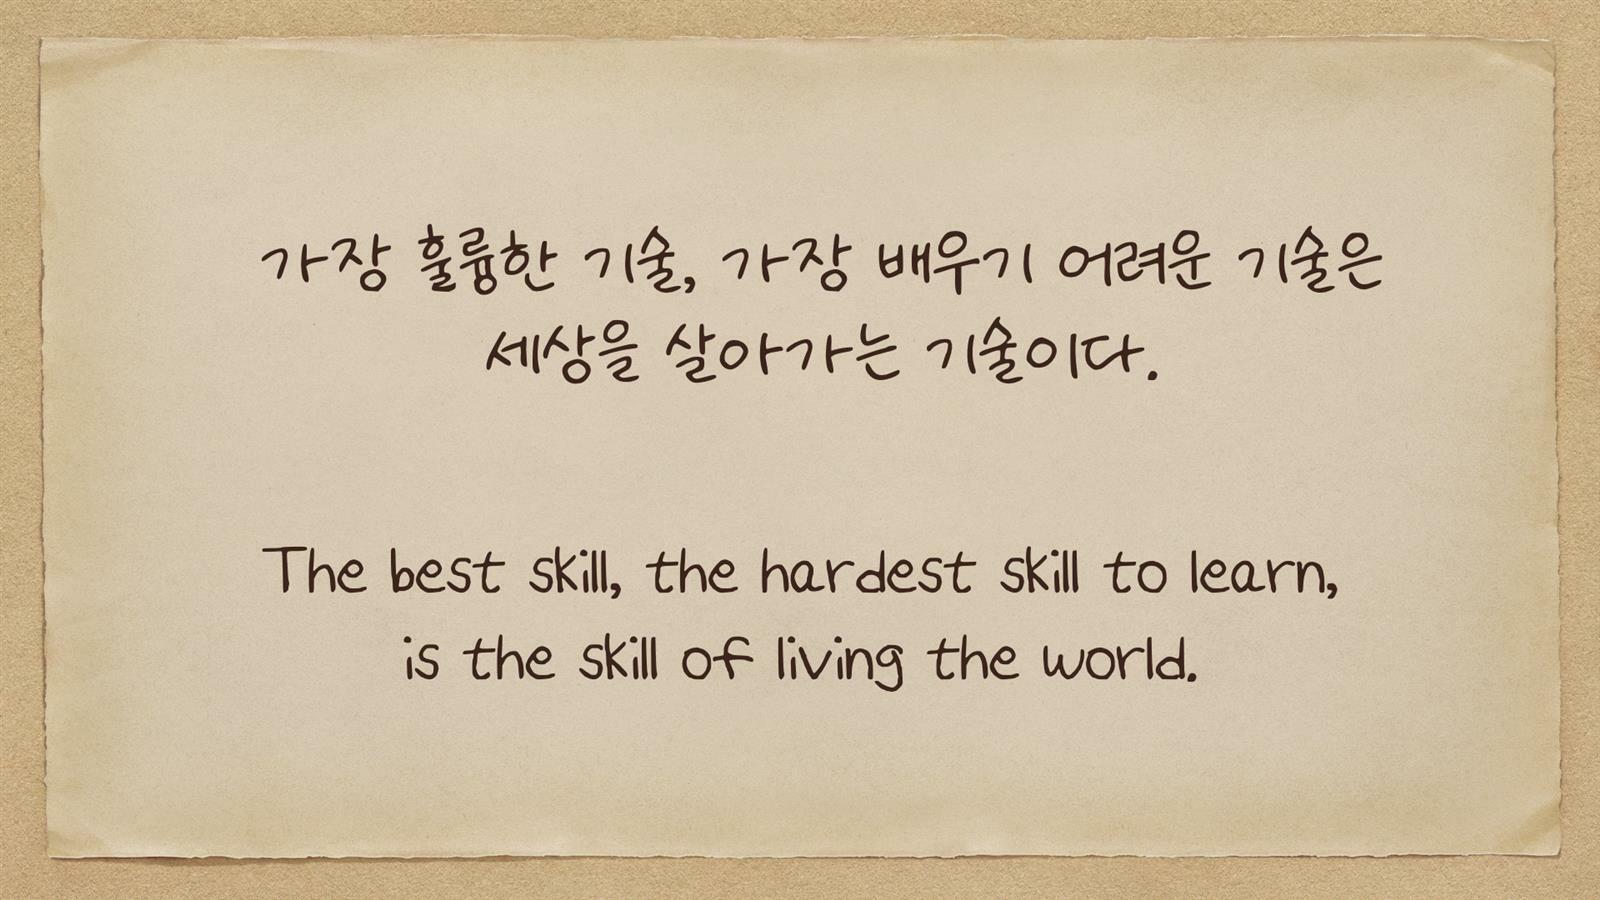 가장 훌륭한 기술, 가장 배우기 어려운 기술은
세상을 살아가는 기술이다.
The best skill, the hardest skill to learn,
is the skill of living the world.